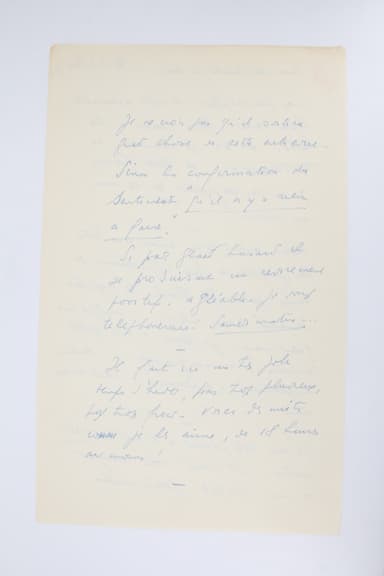 Je ne vois pas qu'il sortira
quet chose de cette entrevue -
Sinon la confirmation du
sentiment "qu'il n'y a rien
à faire."
Si par grand hasard il
se produisait un revirement
positif, agréable, je vous
téléphonerai Samedi matin...
—
Il fait ici un très joli
temps d'hiver, pas trop pluvieux,
pas trop froid - Vraies nuits
comme je les aime, de 15 heures
au moins !
—